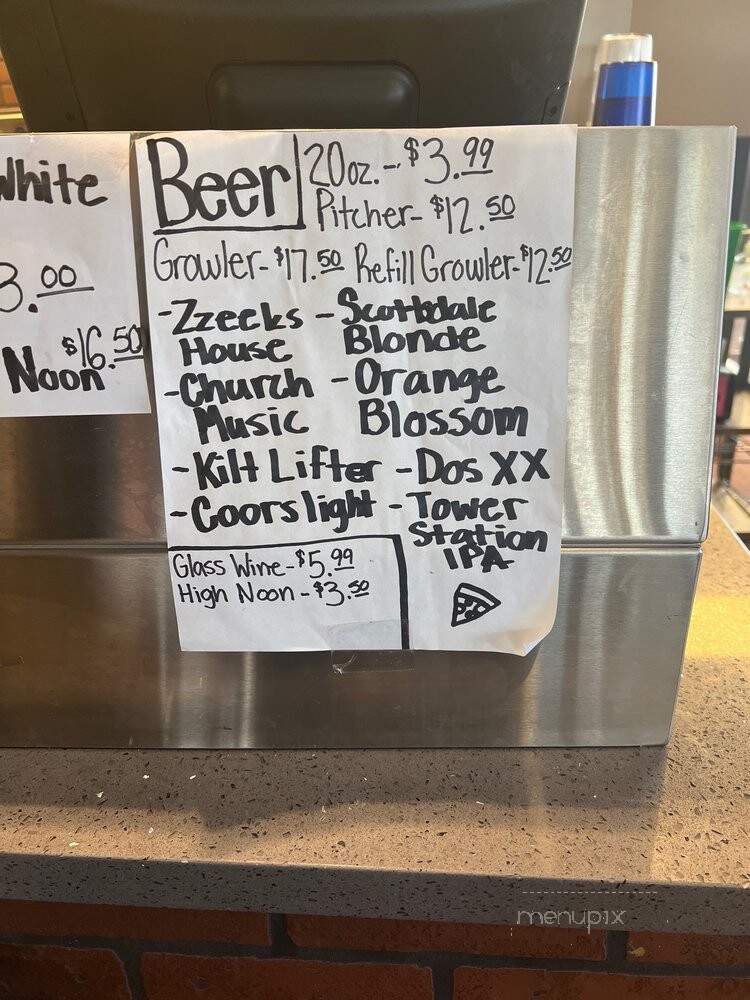 White
3.00
$16.50
Noon
Beer
20oz.-$3.99
Pitcher-$12.50
Growler-$17.50 Refill Growler-$12.50
-Zzeeks House
-Scottsdale Blonde
-Church Music
-Orange Blossom
-Kilt Lifter
-Dos XX
-Coors light
-Tower Station IPA
Glass Wine-$5.99
High Noon-$3.50
menupix